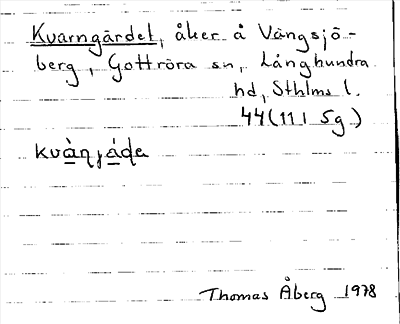 Kvarngärdet, åker å Vängsjö-
berg, Gottröra sn, Långhundra
hd, Sthlms l.
44 (11 I 5g)
kvàn̩jáḍe
Thomas Åberg 1978